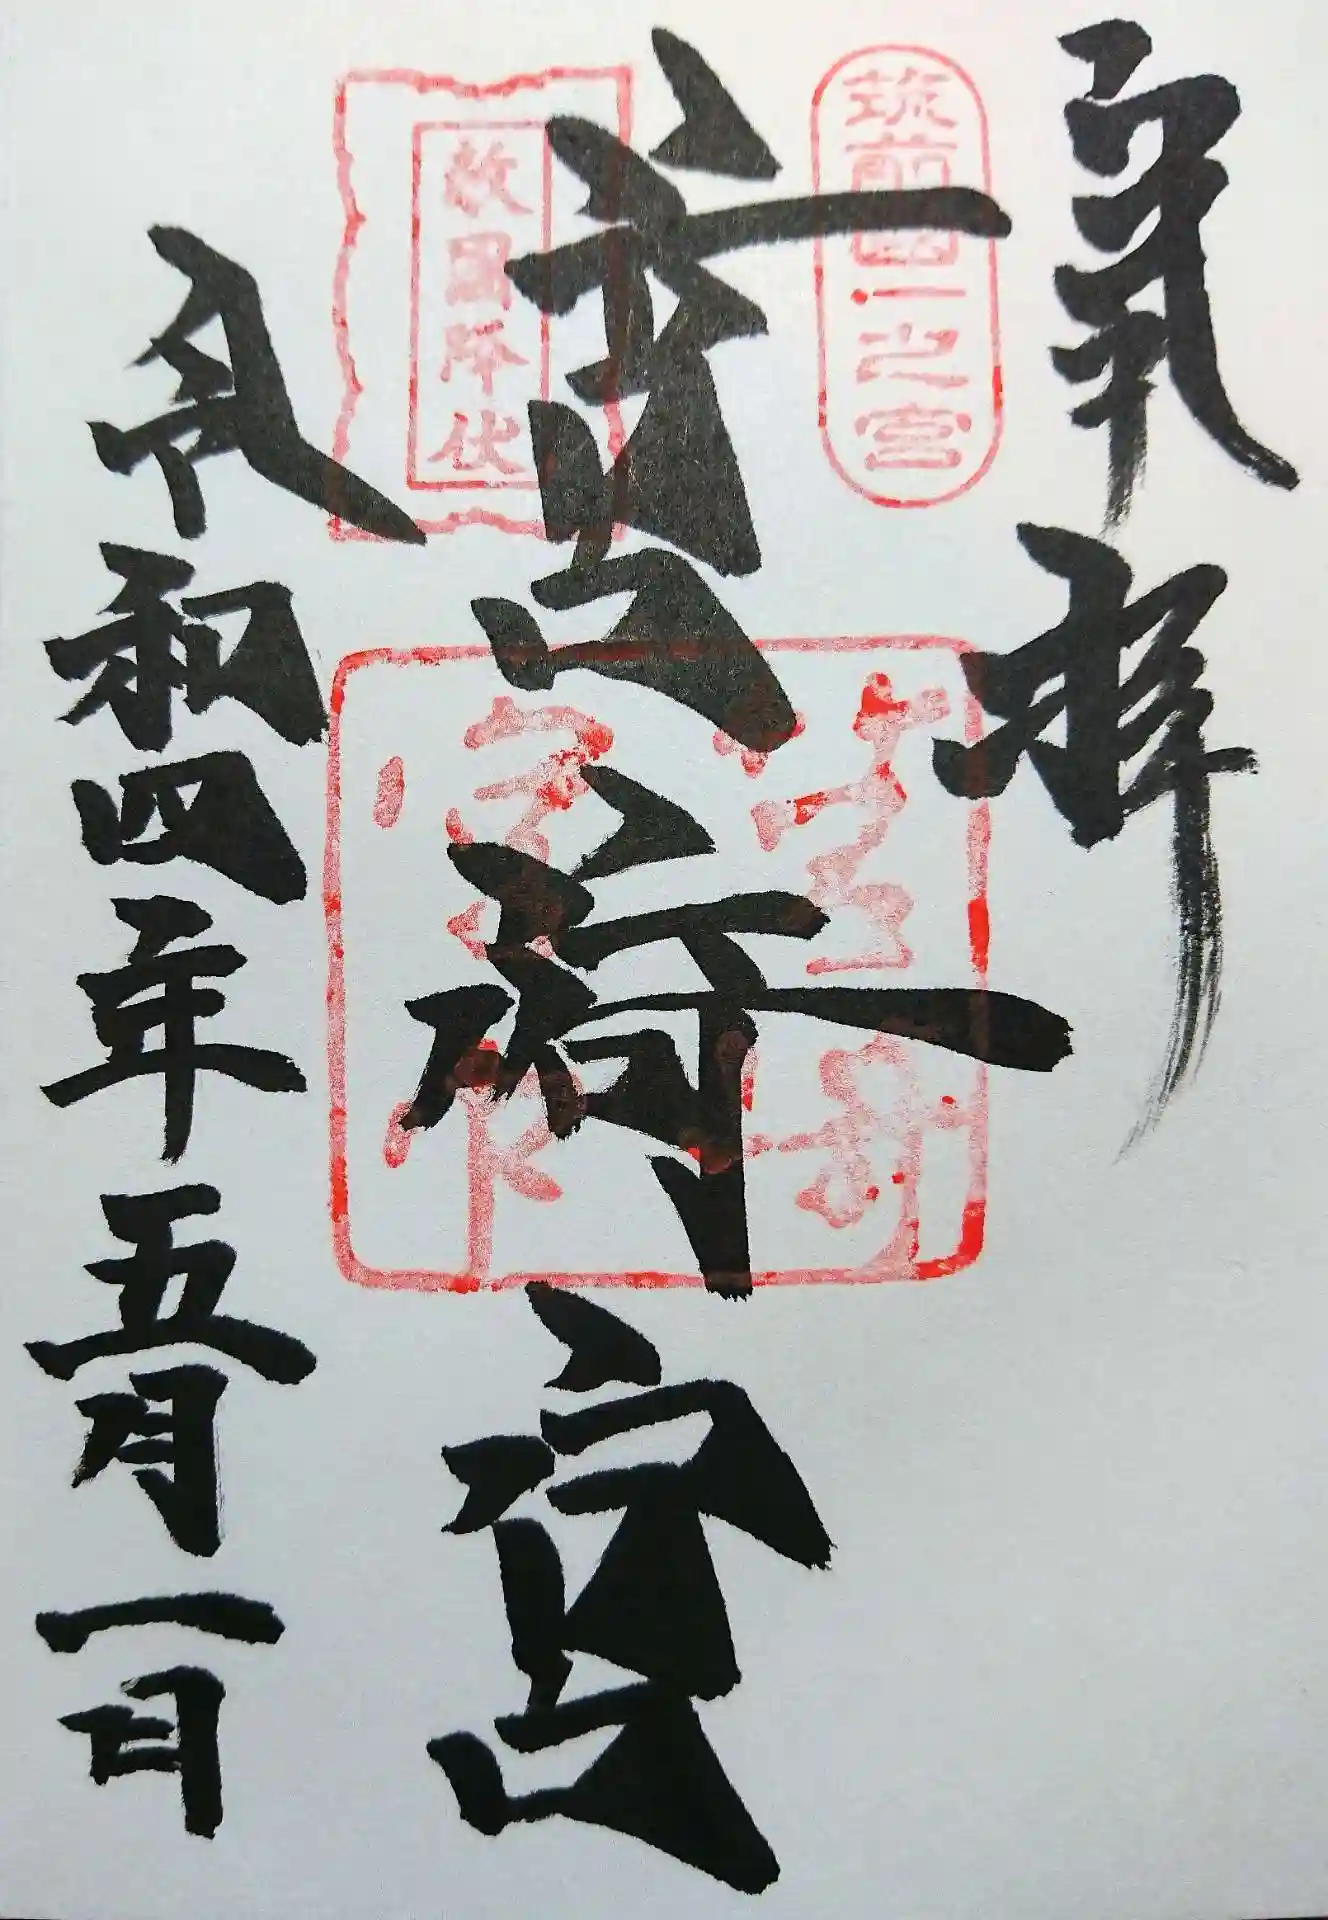 奉拝
筑前國一之宮
筥崎宮
敵國降伏
令和四年五月一日